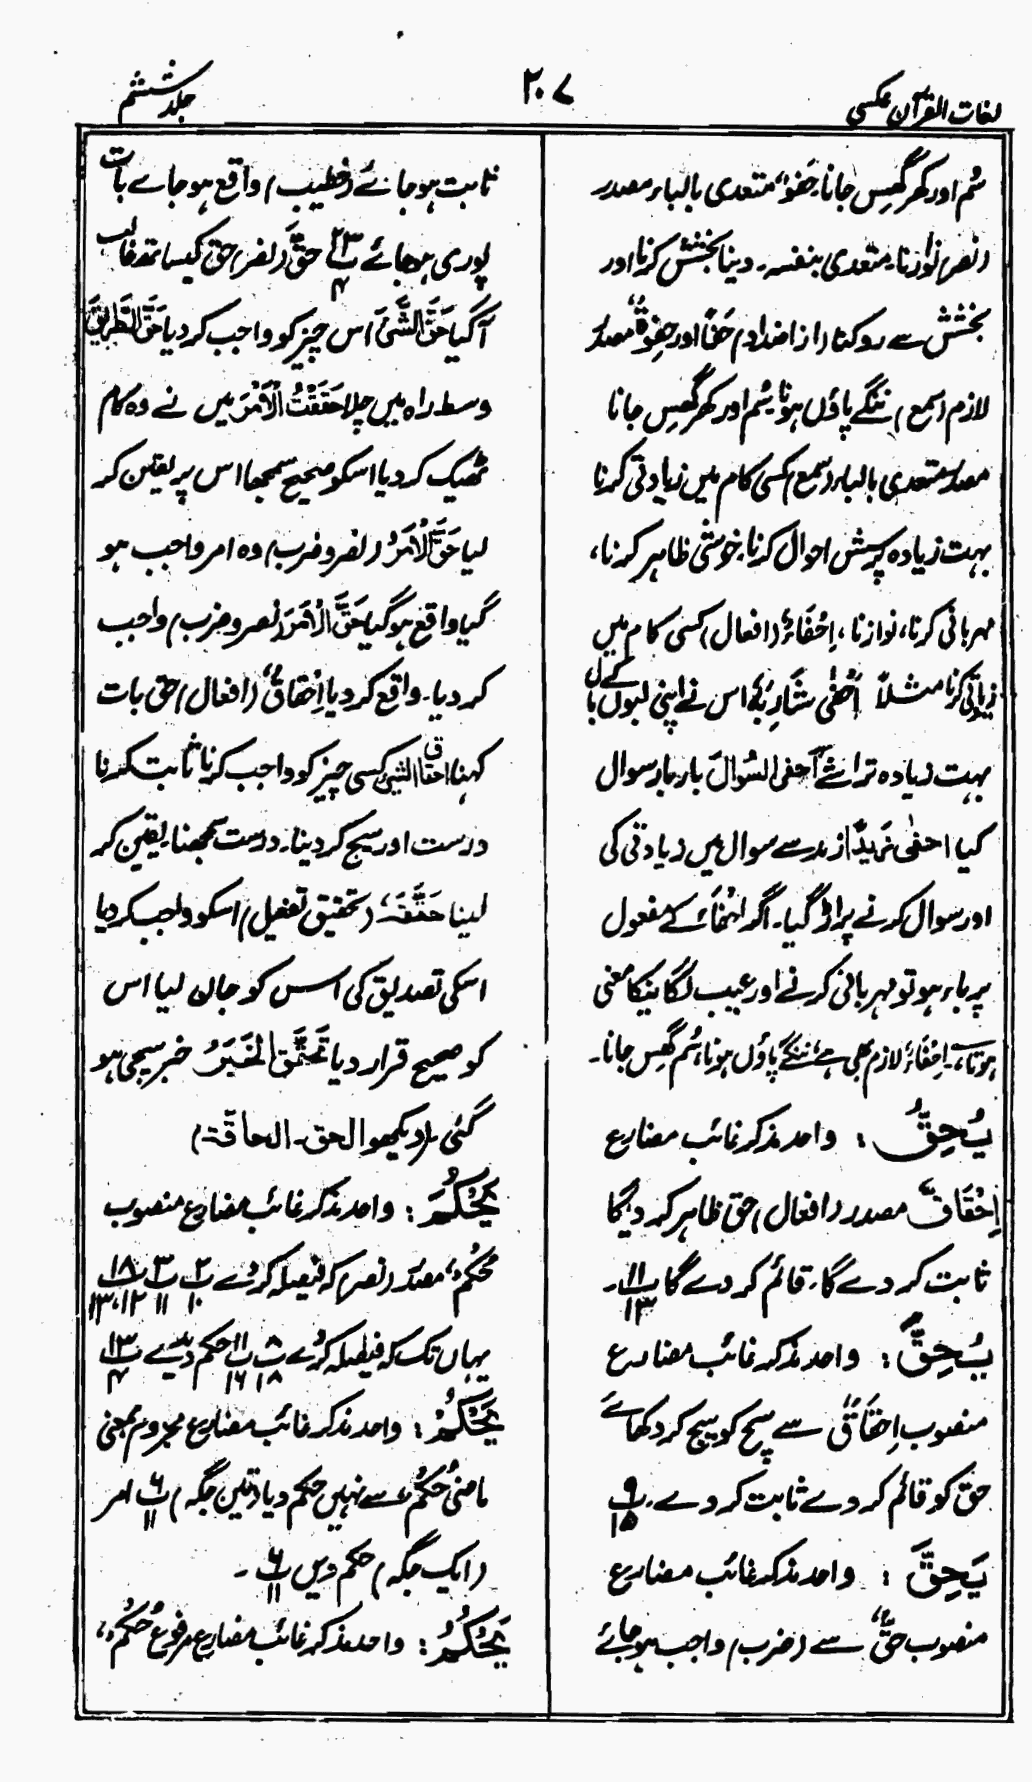 لغات القرآن عکسی
۲۰۷
جلد ششم
سُم اور کھر گھِس جانا۔ حَفْوٌ، متعدی بالباء مصدر
(نصر) نوازنا۔ متعدی بنفسہ۔ دینا بخشش کرنا اور
بخشش سے روکنا (از اضداد) حَفًا اور حِفْوَۃٌ مصدر
لازم (سمع) ننگے پاؤں ہونا سُم اور کھر گھِس جانا
مصدر متعدی بالباء (سمع) کسی کام میں زیادتی کرنا
بہت زیادہ پرسش احوال کرنا۔ خوشی ظاہر کرنا،
مہربانی کرنا، نوازنا، اِحْفَاءٌ (افعال) کسی کام میں
زیادتی کرنا مثلاً اَحْفٰی شَارِبَہٗ اس نے اپنی لبوں کے بال
بہت زیادہ تراشے اَحفی السُوَالَ بار بار سوال
کیا احفٰی زَیداً زید سے سوال میں زیادتی کی
اور سوال کرنے پر اڑ گیا۔ اگر اِحْفَاء کے مفعول
پر باء ہو تو مہربانی کرنے اور عیب لگانیکا معنی
ہوتا ہے۔ اِحْفَاءٌ لازم بھی ہے، ننگے پاؤں ہونا، سُم گھِس جانا۔
یُحِقُّ : واحد مذکر غائب مضارع
اِحْقَاقٌ مصدر (افعال) حق ظاہر کر دیگا
ثابت کر دے گا۔ قائم کر دے گا پ ۱۱/۱۳۔
یُحِقَّ : واحد مذکر غائب مضارع
منصوب اِحْقَاقٌ سے سچ کو سچ کر دکھائے
حق کو قائم کر دے ثابت کر دے۔ پ ۹/۱۵
یَحِقَّ : واحد مذکر غائب مضارع
منصوب حَقٌّ سے (ضرب) واجب ہو جائے
ثابت ہو جائے (خطیب) واقع ہو جاے بات
پوری ہو جائے پ ۲۳/۴ حَقَّ (نصر) حق کیساتھ غالب
آگیا حَقَّ الشَّیْءَ اس چیز کو واجب کر دیا حَقَّ الطَّرِیْقَ
وسط راہ میں چلا حَقَقْتُ الْاَمْرَ میں نے وہ کام
ٹھیک کر دیا اسکو صحیح سمجھا اس پر یقین کر
لیا حَقَّ الْاَمْرُ (نصر و ضرب) وہ امر واجب ہو
گیا واقع ہو گیا حَقَّ الْاَمْرَ (نصر و ضرب) واجب
کر دیا۔ واقع کر دیا اِحْقَاقٌ (افعال) حق بات
کہنا احقاق الشیئ کسی چیز کو واجب کرنا ثابت کرنا
درست اور سچ کر دینا۔ درست سمجھنا۔ یقین کر
لینا حَقَّقَہٗ (تحقیق تفعیل) اسکو واجب کر دیا
اسکی تصدیق کی اس کو جان لیا اس
کو صحیح قرار دیا تَحَقَّقَ الخَبَرُ خبر سچی ہو
گئی۔ (دیکھو الحق۔ الحاقّۃ)
یَحْکُمَ : واحد مذکر غائب مضارع منصوب
حُکْمٌ، مصدر (نصر) کہ فیصلہ کر دے پ ۲/۱۰ پ ۳/۱۱ پ ۱۸/۱۲،۱۳
یہاں تک کہ فیصلہ کر دے پ ۸/۱۸ پ ۱۱/۱۶ حکم دیدے پ ۱۳/۴
یَحْکُمْ : واحد مذکر غائب مضارع مجزوم بمعنی
ماضی حُکْمٌ سے نہیں حکم دیا (تین جگہ) پ ۶/۱۱ امر
(ایک جگہ) حکم دیں پ ۶/۱۱۔
یَحْکُمُ : واحد مذکر غائب مضارع مرفوع حُکْمٌ،